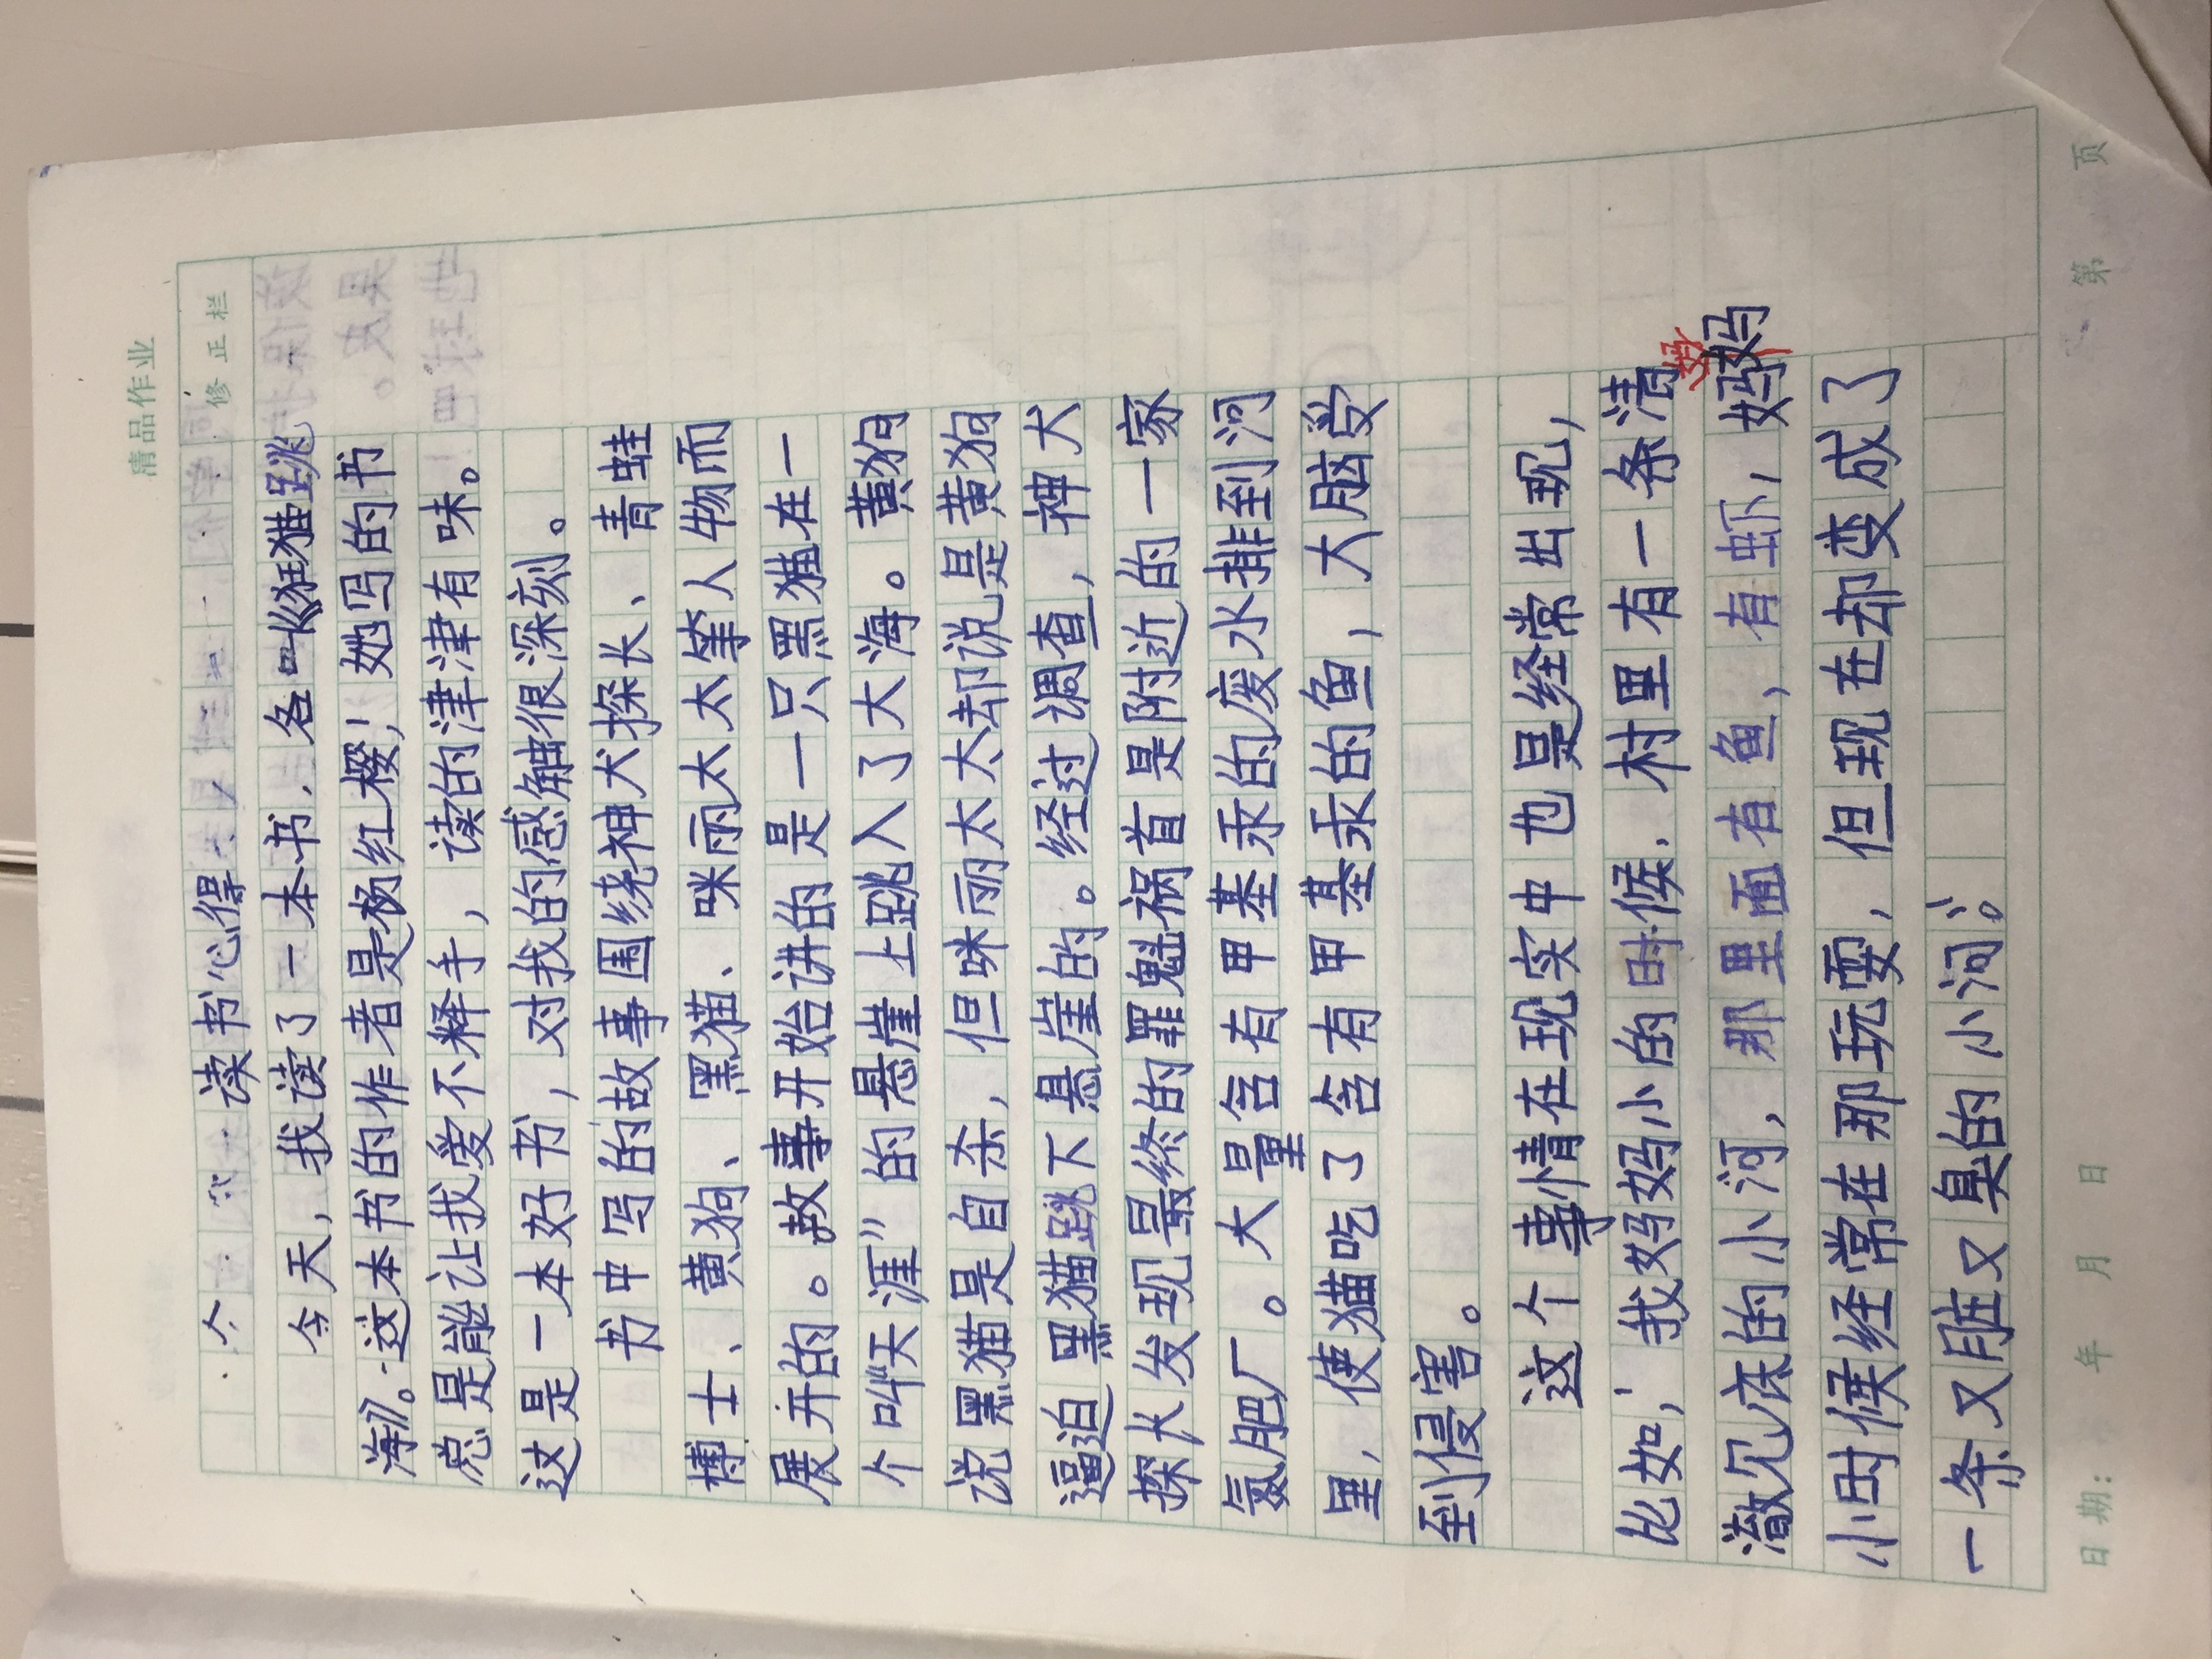 清品作业
修正栏
读书心得
今天，我读了一本书，名叫《狂猫跳
海》。这本书的作者是杨红樱，她写的书
总是能让我爱不释手，读的津津有味。
这是一本好书，对我的感触很深刻。
书中写的故事围绕神犬探长、青蛙
博士、黄狗、黑猫、咪丽太太等人物而
展开的。故事开始讲的是一只黑猫在一
个叫“天涯”的悬崖上跳入了大海。黄狗
说黑猫是自杀，但咪丽太太却说是黄狗
逼迫黑猫跳下悬崖的。经过调查，神犬
探长发现最终的罪魁祸首是附近的一家
氮肥厂。大量含有甲基汞的废水排到河
里，使猫吃了含有甲基汞的鱼，大脑受
到侵害。
这个事情在现实中也是经常出现，
比如，我妈妈小的时候，村里有一条清
澈见底的小河，那里面有鱼，有虾，妈妈
小时候经常在那玩耍，但现在却变成了
一条又脏又臭的小河。
日期： 年 月 日 第 页